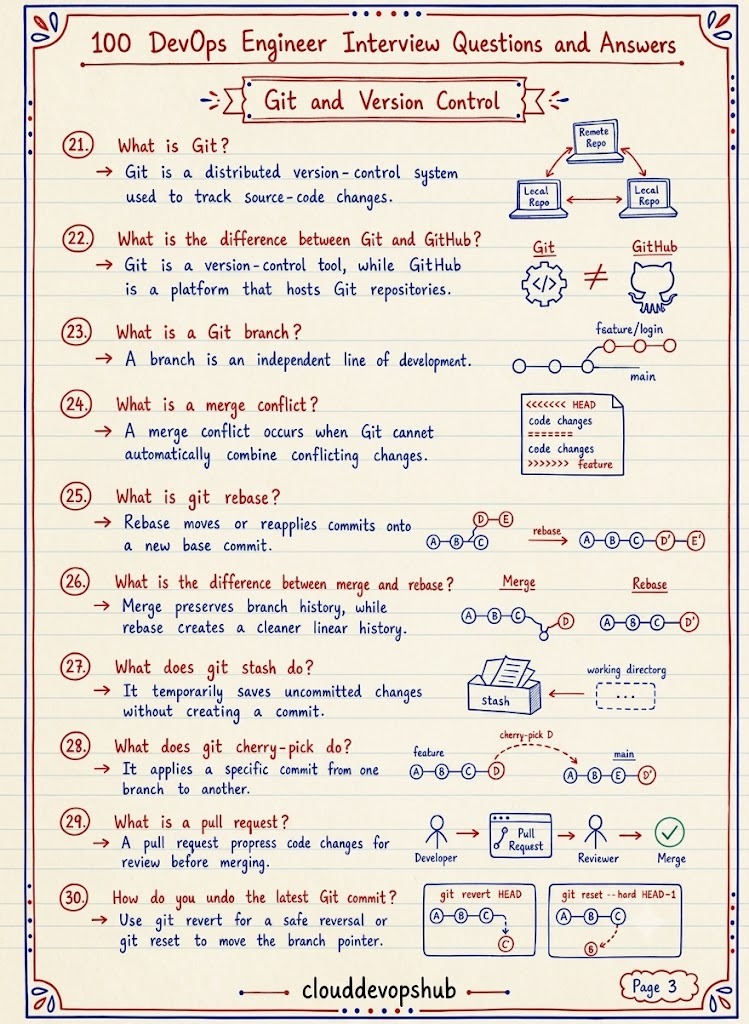 100 DevOps Engineer Interview Questions and Answers
Git and Version Control
21. What is Git?
→ Git is a distributed version-control system
used to track source-code changes.
Remote
Repo
Local
Repo
Local
Repo
22. What is the difference between Git and GitHub?
→ Git is a version-control tool, while GitHub
is a platform that hosts Git repositories.
Git
</>
≠
GitHub
23. What is a Git branch?
→ A branch is an independent line of development.
feature/login
main
24. What is a merge conflict?
→ A merge conflict occurs when Git cannot
automatically combine conflicting changes.
<<<<<<< HEAD
code changes
=======
code changes
>>>>>>> feature
25. What is git rebase?
→ Rebase moves or reapplies commits onto
a new base commit.
D E
A B C
rebase
A B C D' E'
26. What is the difference between merge and rebase?
→ Merge preserves branch history, while
rebase creates a cleaner linear history.
Merge
A B C D
Rebase
A B C D'
27. What does git stash do?
→ It temporarily saves uncommitted changes
without creating a commit.
stash
working directorg
...
28. What does git cherry-pick do?
→ It applies a specific commit from one
branch to another.
cherry-pick D
feature
A B C D
main
A B E D'
29. What is a pull request?
→ A pull request propress code changes for
review before merging.
Developer
Pull
Request
Reviewer
Merge
30. How do you undo the latest Git commit?
→ Use git revert for a safe reversal or
git reset to move the branch pointer.
git revert HEAD
A B C
C'
git reset --hard HEAD-1
A B C
B
clouddevopshub
Page 3